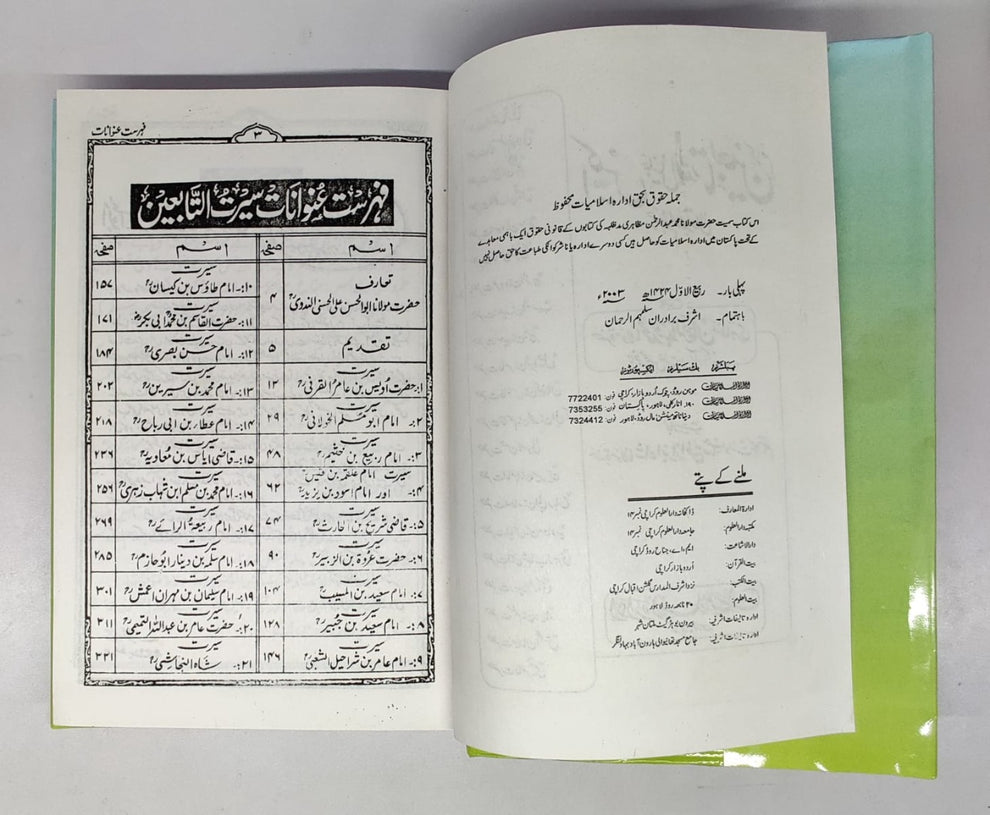 جملہ حقوق بحق ادارہ اسلامیات محفوظ
اس کتاب سمیت حضرت مولانا محمد عبدالرحمٰن مظاہری مدظلہ کی کتابوں کے قانونی حقوق ایک باہمی معاہدے
کے تحت پاکستان میں ادارہ اسلامیات کو حاصل ہیں کسی دوسرے ادارہ یا ناشر کو انکی طباعت کا حق حاصل نہیں
پہلی بار۔ ربیع الاوّل ۱۴۲۴ھ ۲۰۰۳ء
باہتمام۔ اشرف برادران سلمہم الرحمان
پبلشرز بک سیلرز ایکسپورٹرز
ادارہ اسلامیات موہن روڈ، چوک اُردو بازار، کراچی فون: 7722401
ادارہ اسلامیات ۱۹۰، انارکلی، لاہور، پاکستان فون: 7353255
ادارہ اسلامیات دینا ناتھ مینشن مال روڈ، لاہور فون: 7324412
ملنے کے پتے
ادارۃ المعارف: ڈاکخانہ دارالعلوم کراچی نمبر ۱۴
مکتبہ دارالعلوم: جامعہ دارالعلوم کراچی نمبر ۱۴
دارالاشاعت: ایم، اے، جناح روڈ کراچی
بیت القرآن: اُردو بازار کراچی
بیت الکتب: نزد اشرف المدارس گلشن اقبال کراچی
بیت العلوم: ۲۰ نابھہ روڈ لاہور
ادارہ تالیفات اشرفیہ: بیرون بوہڑ گیٹ ملتان شہر
ادارہ تالیفات اشرفیہ: جامع مسجد تھانیوالی ہارون آباد بہاولنگر
فہرست عنوانات
۳
فہرست عنوانات سیرت التابعین
اسم صفحہ اسم صفحہ
تعارف
حضرت مولانا ابوالحسن علی الحسنی الندویؒ ۴
سیرت
۱۰:۔ امام طاؤس بن کیسانؒ ۱۵۷
سیرت
۱۱:۔ حضرت القاسم بن محمد بن ابی بکرؓ ۱۷۱
تقدیم ۵
سیرت
۱۲:۔ امام حسن بصریؒ ۱۸۴
سیرت
۱:۔ حضرت اویس بن عامر القرنیؒ ۱۲
سیرت
۱۳:۔ امام محمد بن سیرینؒ ۲۰۲
سیرت
۲:۔ امام ابو مسلم الخولانیؒ ۲۹
سیرت
۱۴:۔ امام عطار بن ابی رباحؒ ۲۱۸
سیرت
۳:۔ امام ربیع بن خثیمؒ ۴۸
سیرت
۱۵:۔ قاضی ایاس بن معاویہؒ ۲۳۶
سیرت امام علقمہ بن قیس
۴:۔ اور امام اسود بن یزیدؒ ۶۲
سیرت
۱۶:۔ امام محمد بن مسلم ابن شہاب زہریؒ ۲۵۶
سیرت
۵:۔ قاضی شریح بن الحارثؒ ۷۴
سیرت
۱۷:۔ امام ربیعۃ الرائےؒ ۲۶۹
سیرت
۶:۔ حضرت عروۃ بن الزبیرؒ ۹۰
سیرت
۱۸:۔ امام سلمہ بن دینار ابو حازمؒ ۲۸۵
سیرت
۷:۔ امام سعید بن المسیبؒ ۱۰۴
سیرت
۱۹:۔ امام سلیمان بن مہران اعمشؒ ۳۰۱
سیرت
۸:۔ امام سعید بن جبیرؒ ۱۲۸
سیرت
۲۰:۔ حضرت عامر بن عبداللہ التمیمیؒ ۳۱۱
سیرت
۹:۔ امام عامر بن شراحیل الشعبیؒ ۱۴۶
سیرت
۲۱:۔ شاہ النجاشیؒ ۳۳۱